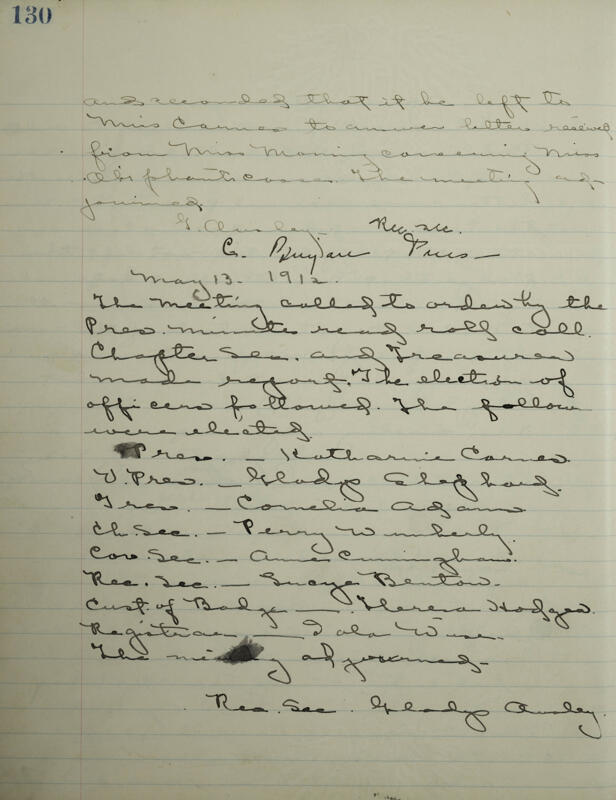 130
and seconded that it be left to
Miss Carnes to answer letters received
from Miss Moning concerning Miss
Oliphant's case. The meeting ad-
journed.
G. Ausley - Rec. Sec.
C. Pres -
May 13. 1912.
The meeting called to order by the
Pres. minutes read roll call.
Chapter Sec. and Treasurer
made report. The election of
officers followed. The follow
were elected.
Pres. - Katharine Carnes.
V. Pres. - Gladys Shephard.
Tres. - Cornelia Adams
Ch. Sec. - Perry Wimberly.
Cor. Sec. - Annie Cunningham.
Rec. Sec. - Benton.
Cust. of Badge - Theresa Hodges.
Registrar - Iola Wise.
The adjourned -
Rec. Sec. Gladys Ausley.